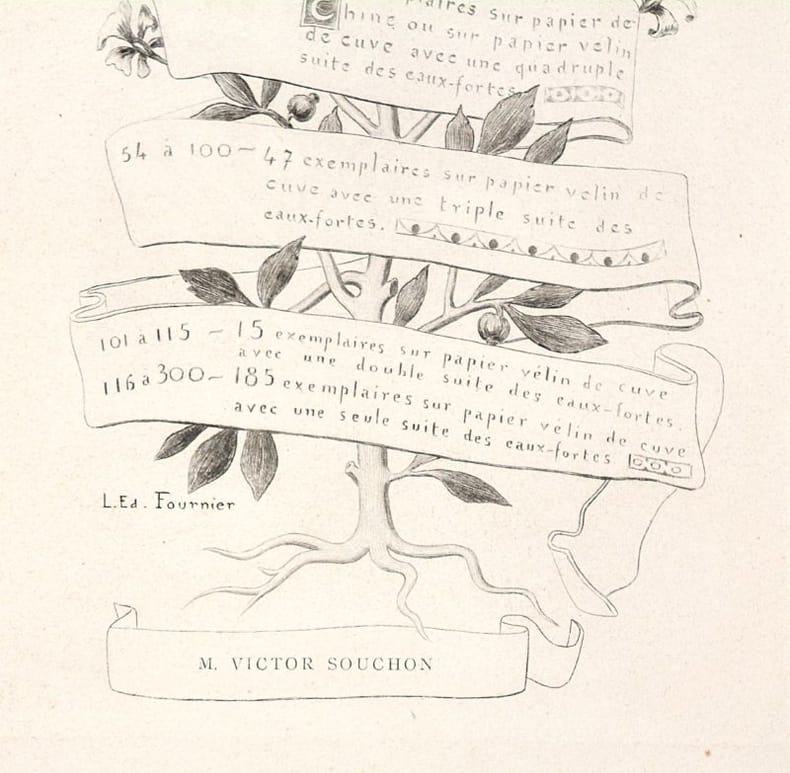 sur papier de
Chine ou sur papier vélin
de cuve avec une quadruple
suite des eaux-fortes.
54 à 100 — 47 exemplaires sur papier velin de
cuve avec une triple suite des
eaux-fortes.
101 à 115 — 15 exemplaires sur papier vélin de cuve
avec une double suite des eaux-fortes.
116 à 300 — 185 exemplaires sur papier vélin de cuve
avec une seule suite des eaux-fortes
L.Ed. Fournier
M. VICTOR SOUCHON